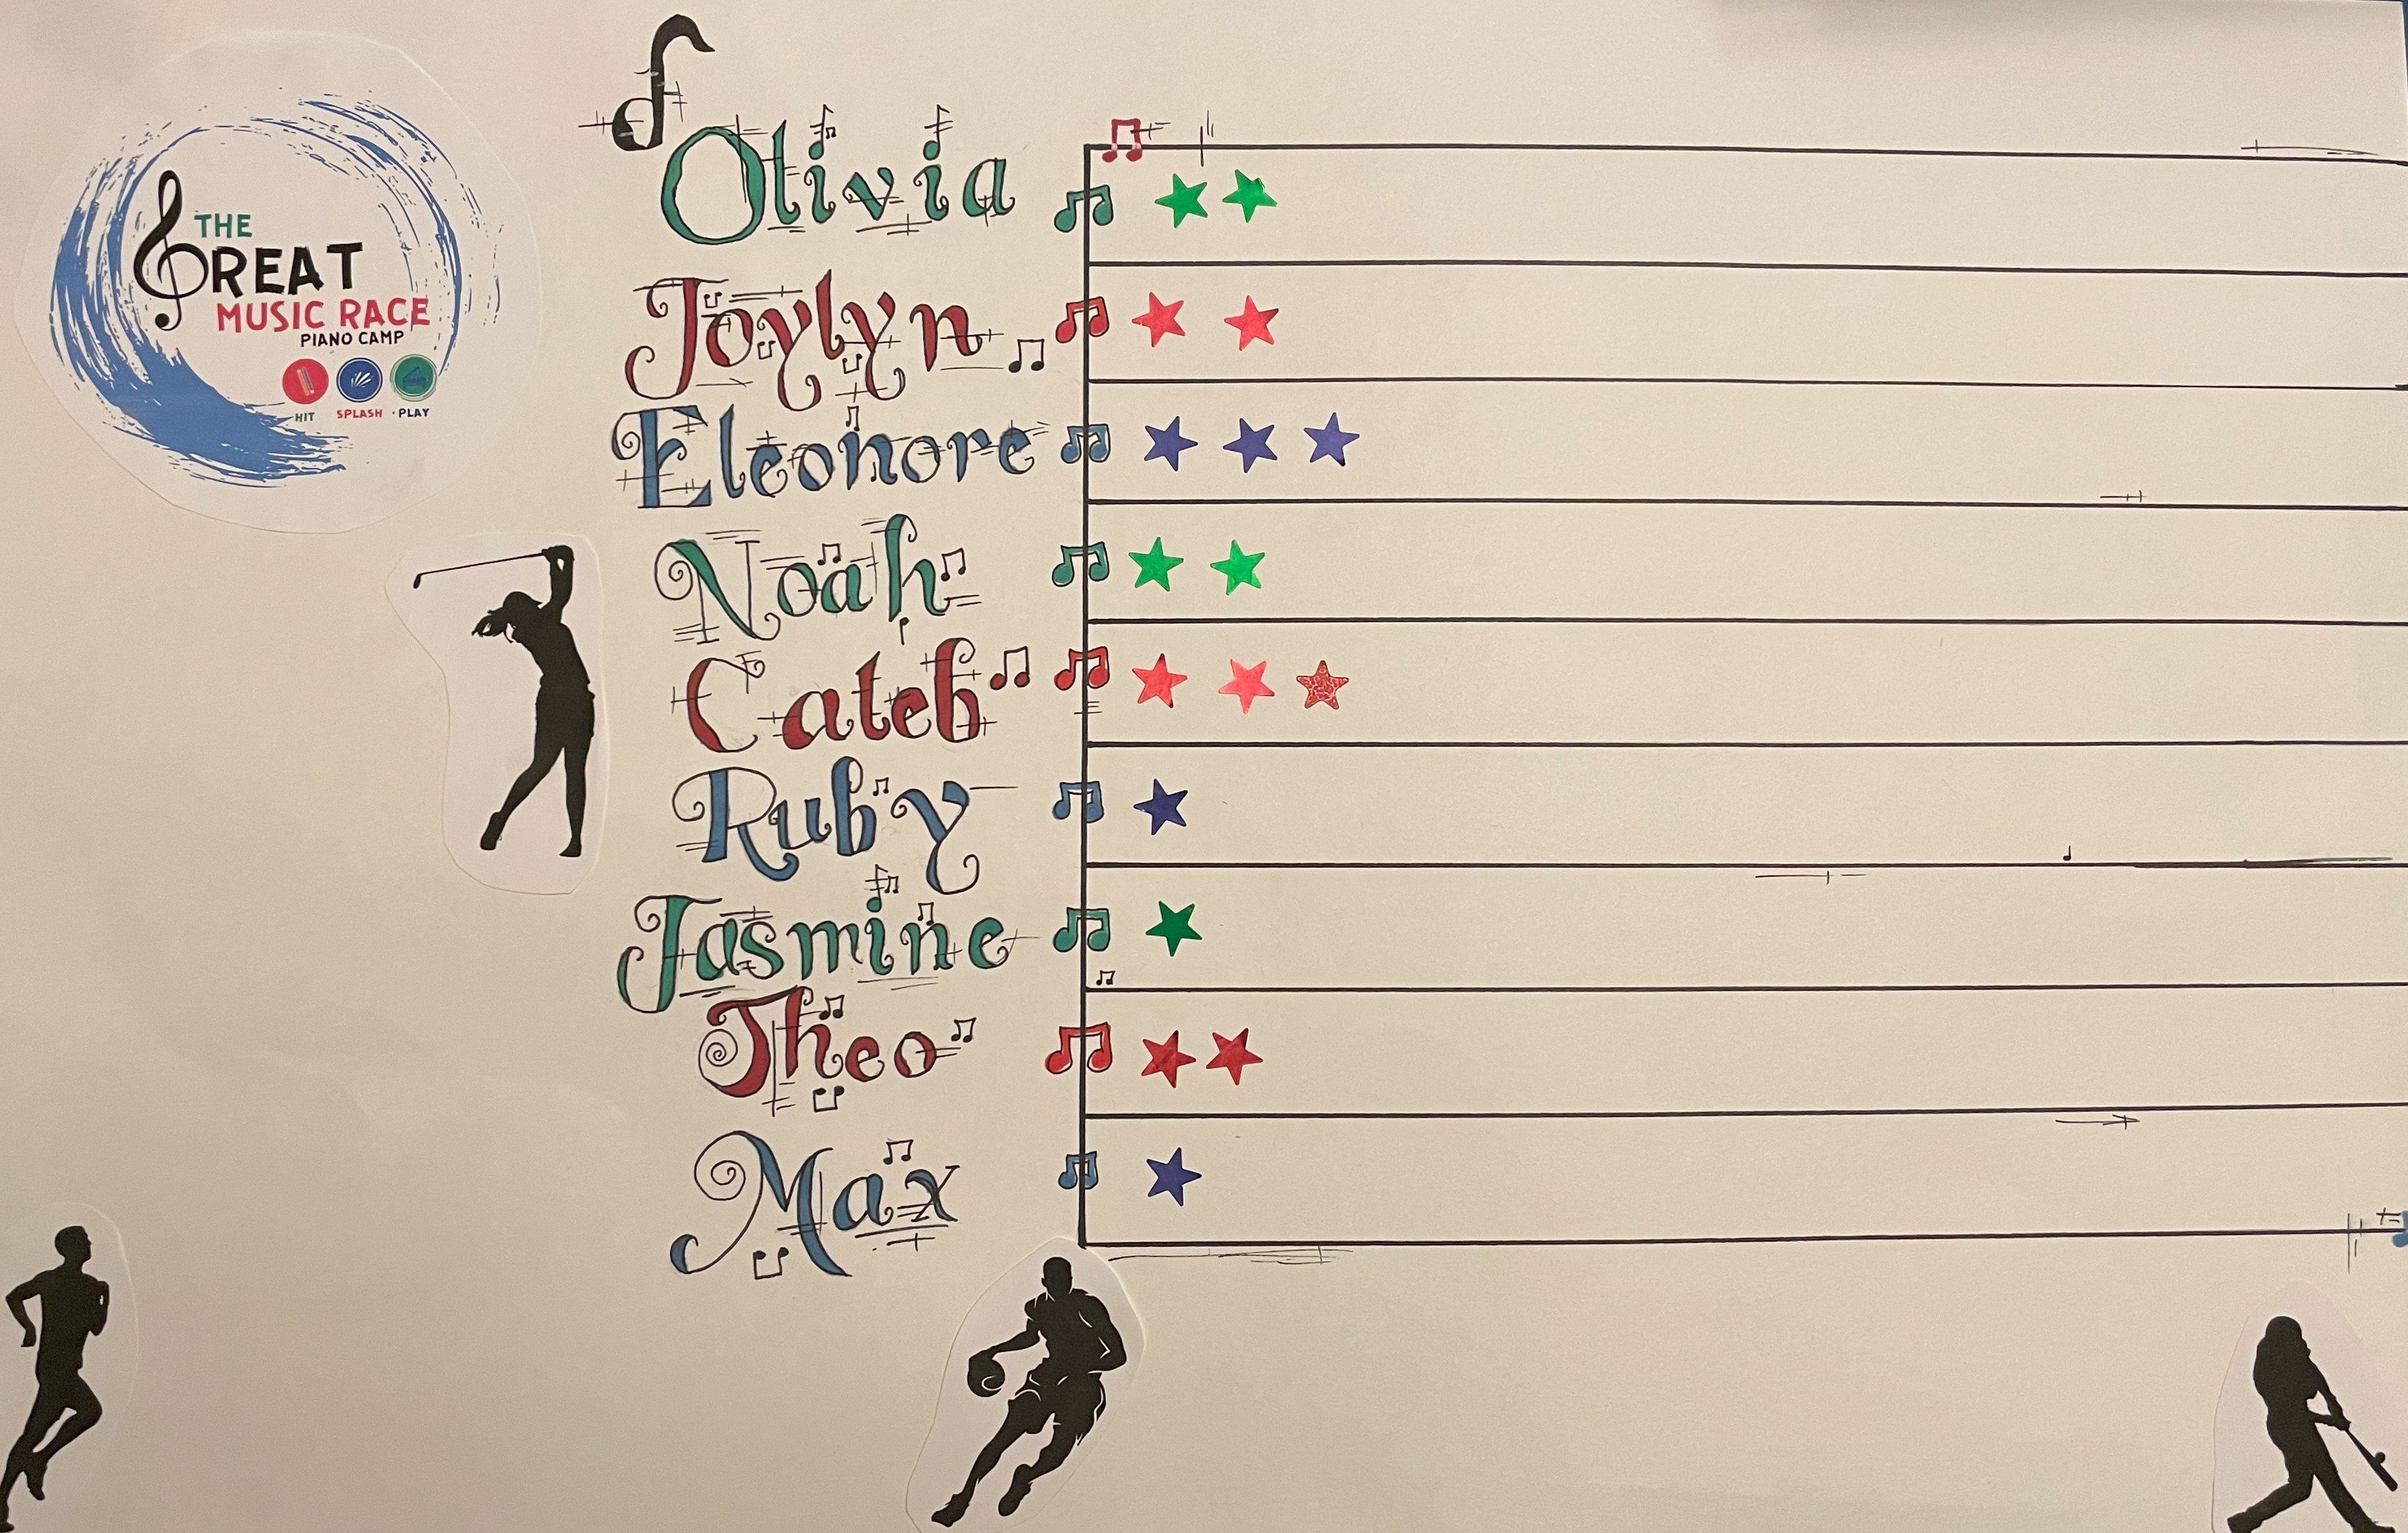 THE
GREAT
MUSIC RACE
PIANO CAMP
HIT SPLASH PLAY
Olivia
Joylyn
Eleonore
Noah
Caleb
Ruby
Jasmine
Theo
Max